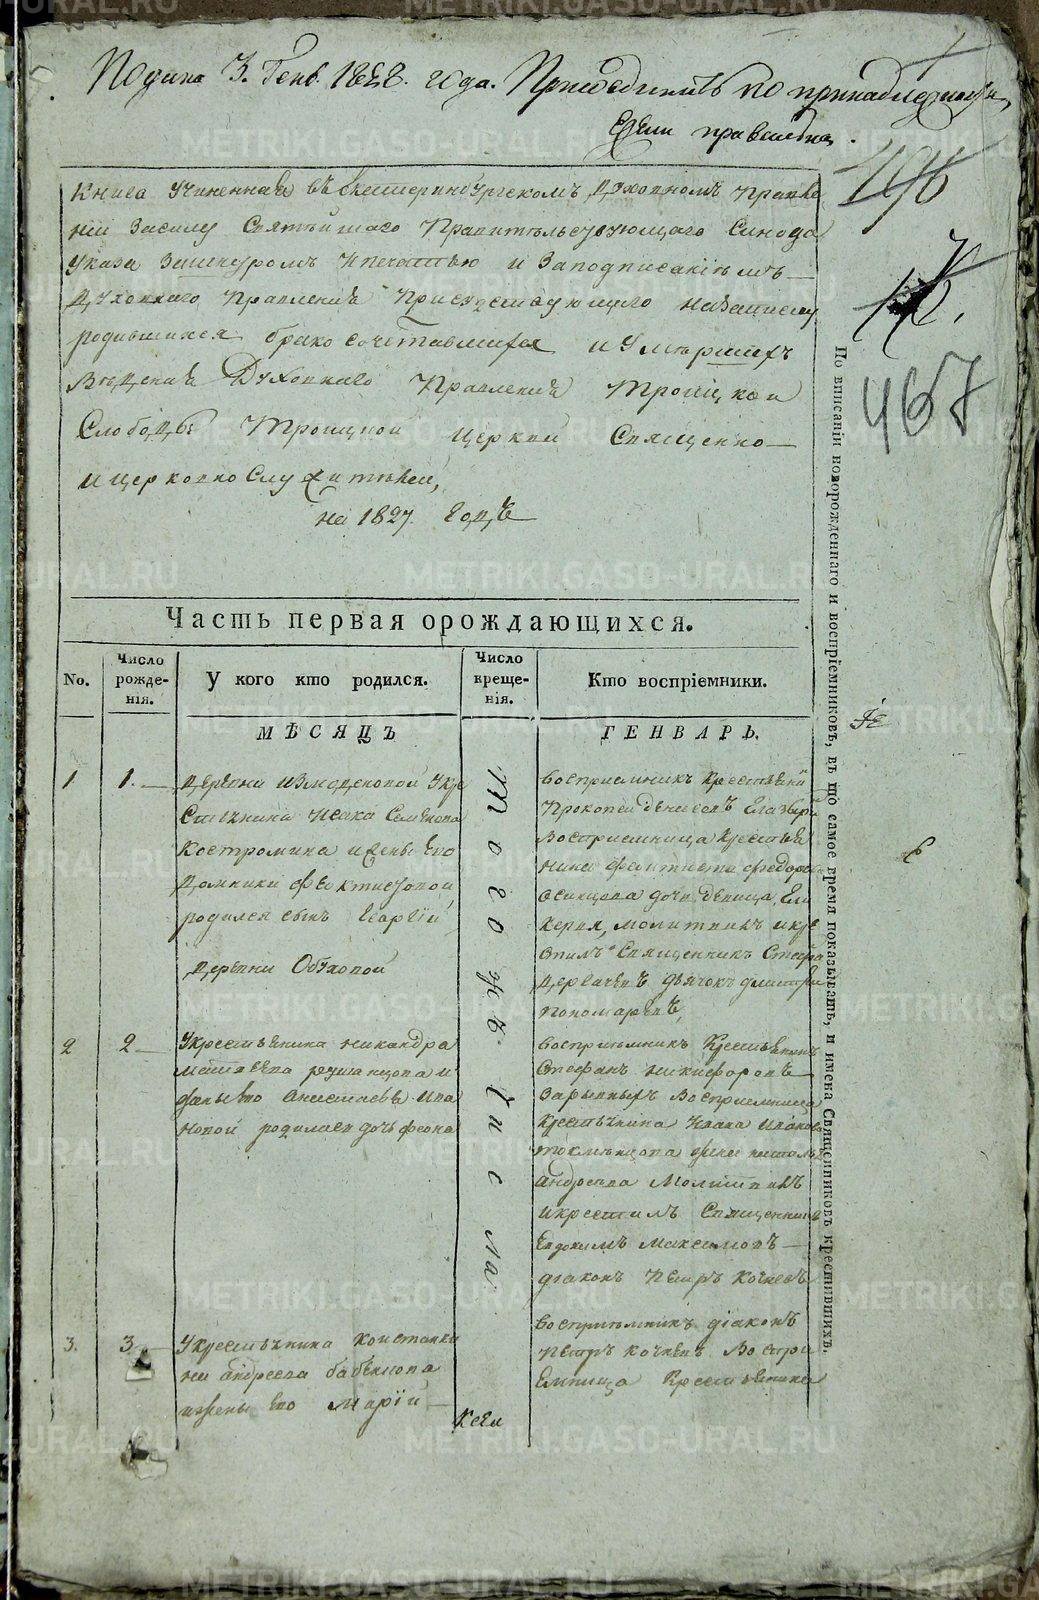 Подана 3. Генв. 1828. года. Присоединить по принадлежности,
Ежели правильна.
Книга Учиненная въ Екатеринбургскомъ Духовномъ Правле
нiи Засилу Святѣйшаго Правительствующаго Синода
Указа Зашнуромъ Ипечатью и Заподписанiемъ
Духовнаго Правленiя Присудствующаго назаписку
родившихся бракосочетавшихся и Умершихъ
Вѣденiя Духовнаго Правленiя Троицкой
Слободы Троицкой церкви Священно—
ицерковно Служителей,
на 1827. Годъ
467
По вписанiи новорожденнаго и воспрiемниковъ, въ то самое время показывать, и имена Священниковъ крестившихъ.
Часть первая орождающихся.
No.
Число рожде-нiя.
У кого кто родился.
Число креще-нiя.
Кто воспрiемники.
МѢСЯЦЪ
ГЕНВАРЬ.
1
1.
Деревни Измоденовой Укре
стьянина Исака Семенова
Костромина и жены Его
Домники Феоктистовой
родился сынъ Георгiй
Деревни Обуховой
Тогожъ Числа
Восприемникъ Крестьянинъ
Прокопей Денисовъ
Восприемница Крестья
нина Феоктиста Федорова
Осинцова дочь девица
молитвилъ икре
стилъ Священникъ
дьячокъ Дмитрiй
Пономаревъ,
2
2
Укрестьянина Никандра
Матвеева
жены Его Анистасьи Ива
новой родилась дочь Феона
Восприемникъ Крестьянинъ
Стефанъ Никифоровъ
Зарывныхъ Восприемница
Крестьянина Ивана
жена
Андреева Молитвилъ
Икрестилъ Священникъ
Евдокимъ Максимовъ
дiаконъ Петръ Кочневъ
3.
3
Укрестьянина Константи
на Андреева Бабенцова
ижены Его Марiи
Воспрiемникъ дiаконъ
Петръ Кочневъ Воспри
емница Крестьянина
METRIKI.GASO-URAL.RU